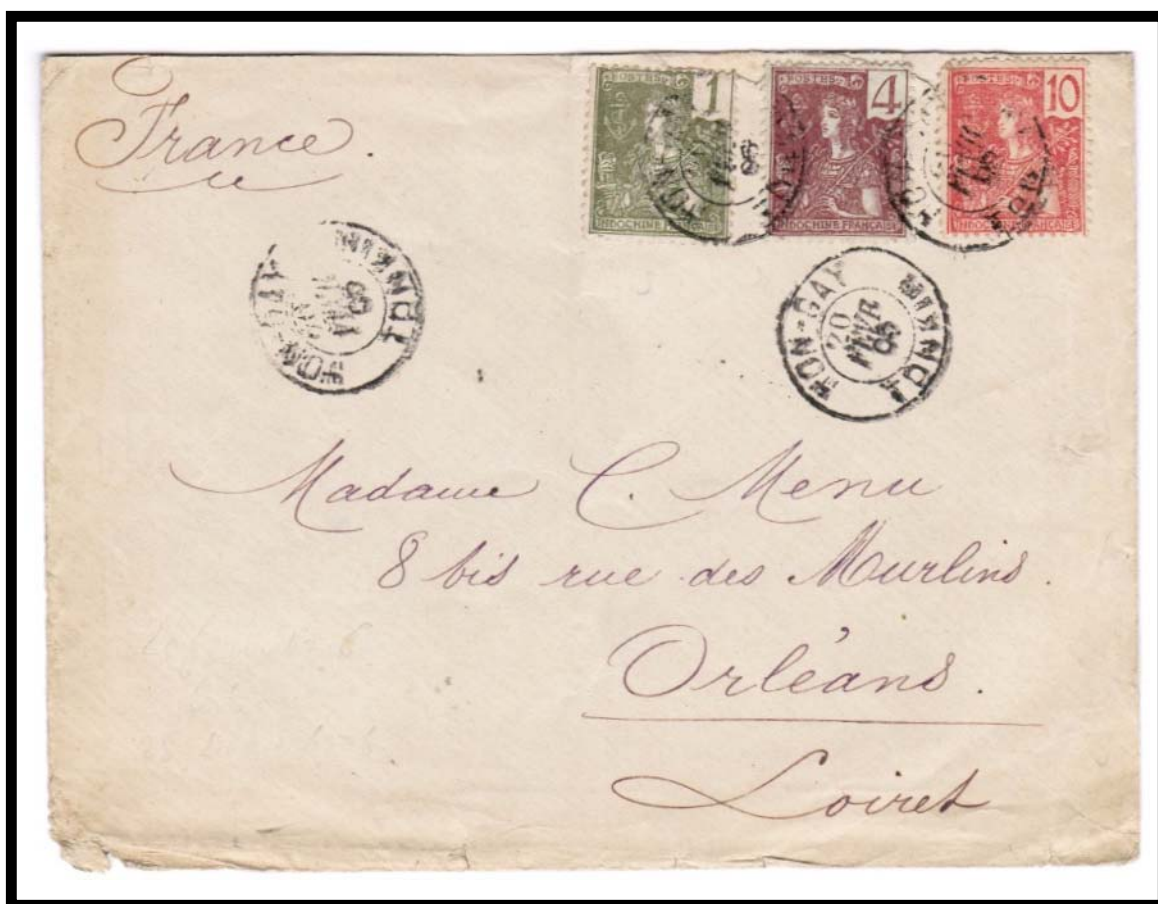 France.
POSTES 1
INDOCHINE FRANÇAISE
POSTES 4
INDOCHINE FRANÇAISE
POSTES 10
INDOCHINE FRANÇAISE
HON-GAY TONKIN
HON-GAY
20
FEVR
05
TONKIN
Madame C. Menu
8 bis rue des Murlins.
Orléans.
Loiret